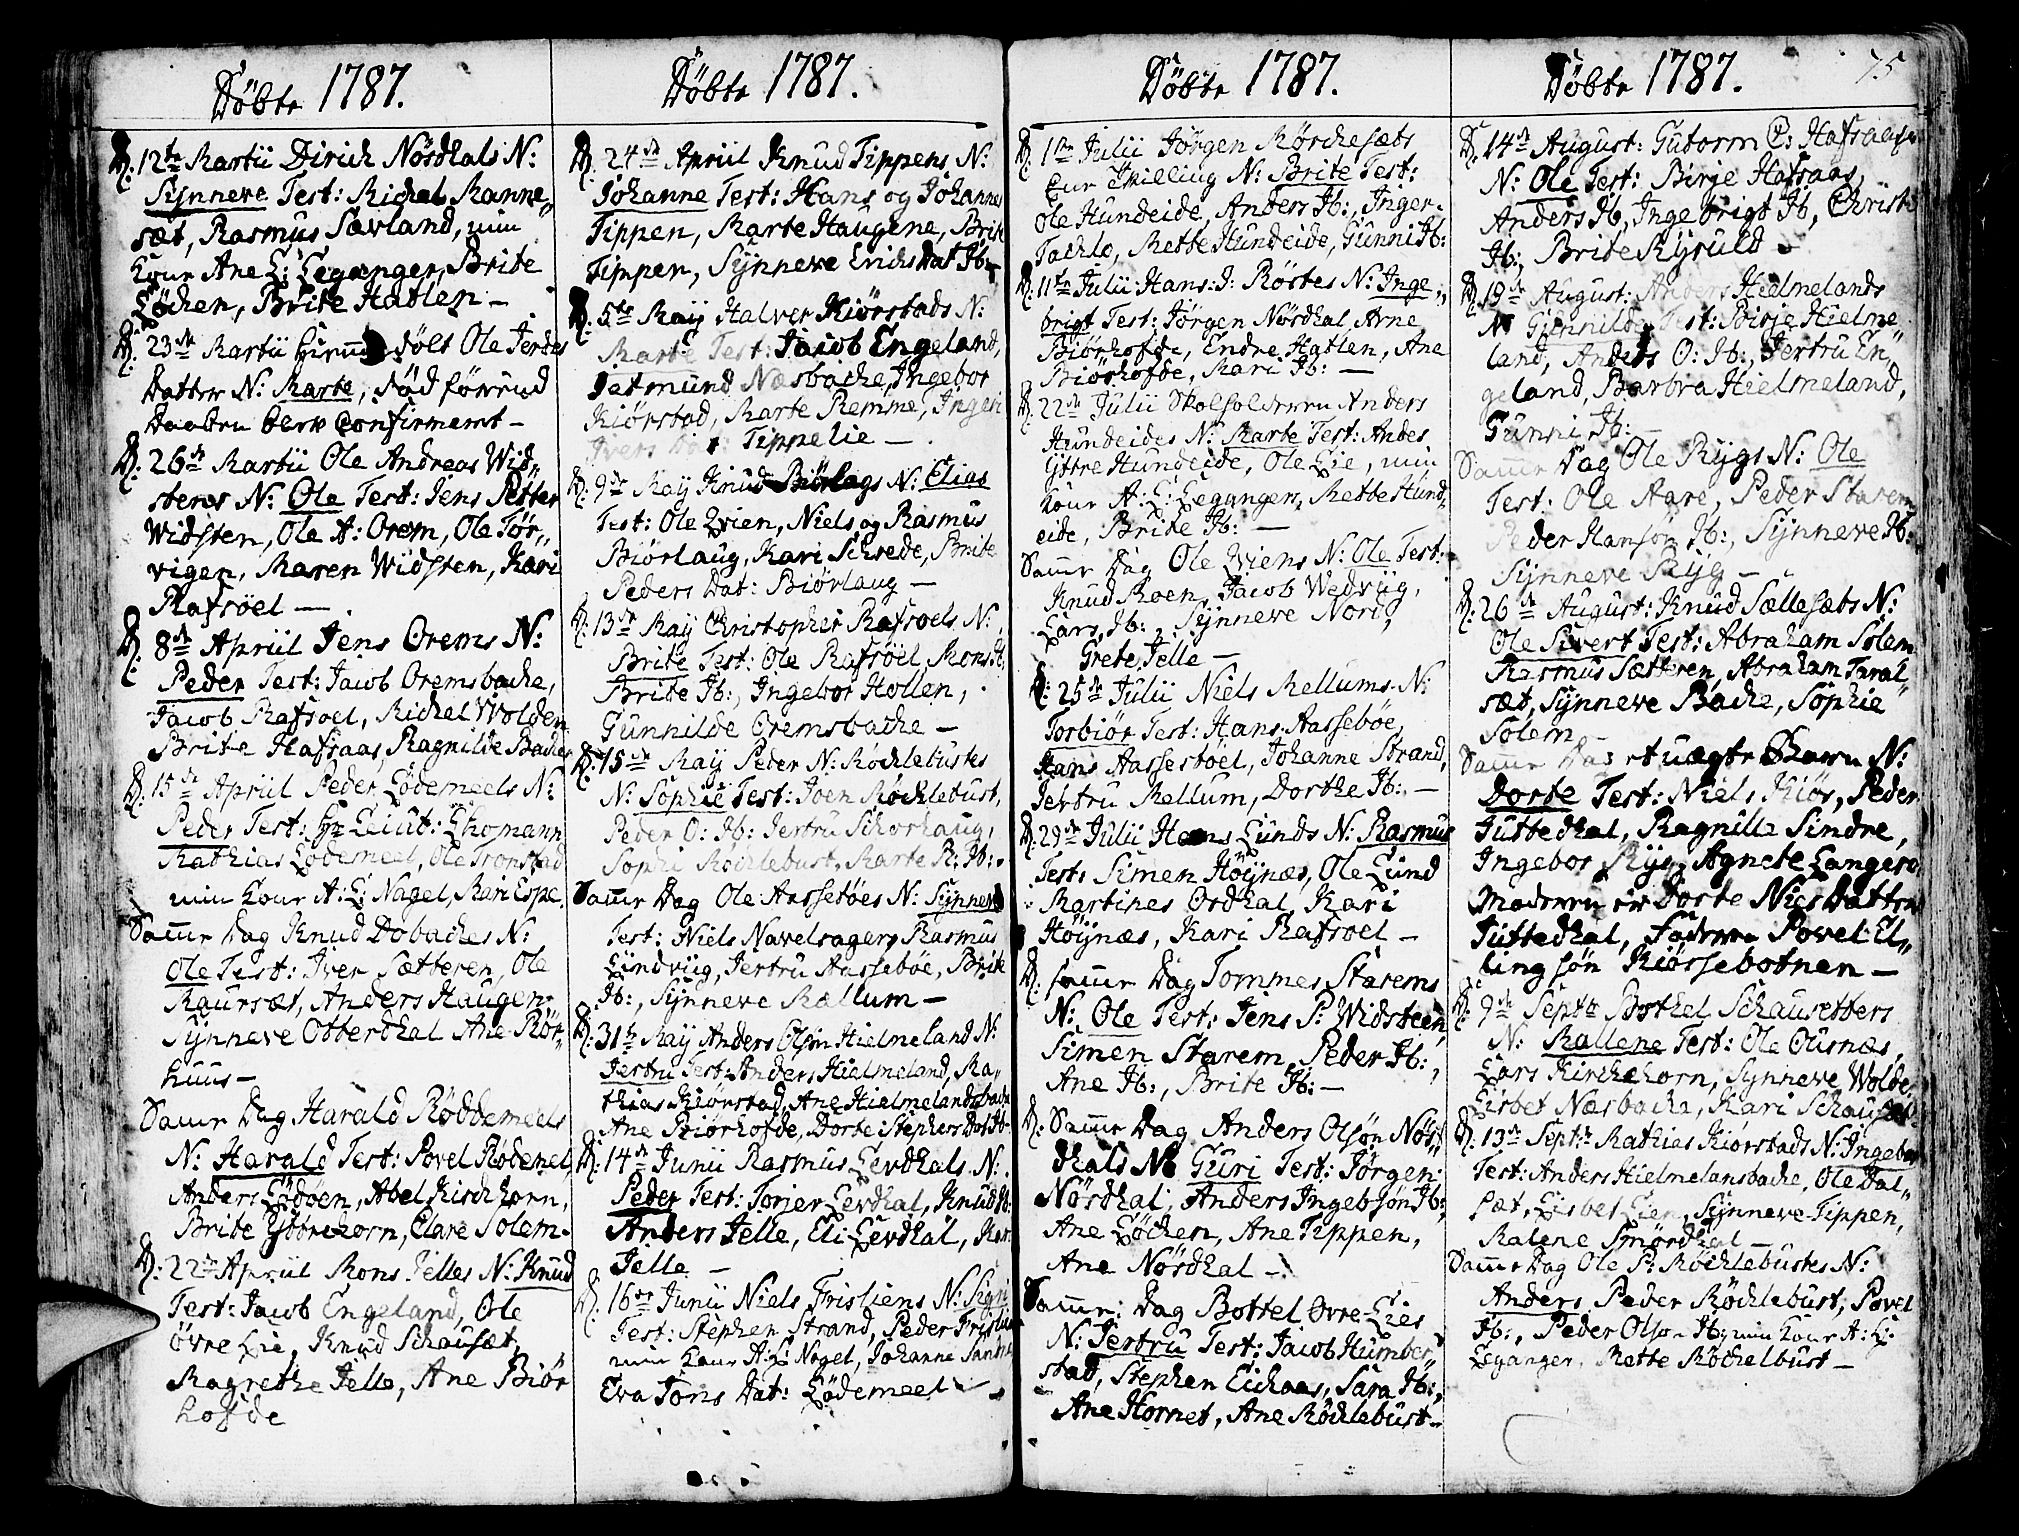 Döbte 1787.
D: 12te Martii Dirich Nördhals N:
Synneve Test: Michel Manne„
sæt, Rasmus Sævland, min
Kone Ane L: Leganger, Brite
Löchen, Brite Hatlen —
D: 23de Martii Jölt Ole Jerdes
Datter N: Marte, Fád förend
blev Confirmert —
D: 26de Martii Ole Andreas Wid„
stens N: Ole Test: Jens Petter
Widsten, Ole A: Orem, Ole Tör„
vigen, Maren Widsten, Kari
Rafsöel —
D: 8de Apriil Jens Orems N:
Peder Test: Jacob Oremsbache,
Jacob Rafsoel, Michel Wolden
Brite Hafsaas, Ragnilde Bache
D: 15de Apriil Peder Lödemeels N:
Peder Test: Hr Leiut: Thomann
Mathias Lödemeel, Ole Tronstad
min Kone A: L: Nagel, Mari Espe.
Samme Dag Knud Dobaches N:
Ole Test: Iver Sætteren, Ole
Maursæt, Anders Haugen
Synneve Otterdhal Ane Röt„
huus —
Samme Dag Harald Röddemeels
N: Harald Test: Povel Rödemel
Anders Lödöen, Abel Kirchhorn,
Brite Ytterehorn, Clare Solem.
D: 22de Apriil Mons Jelles N: Knud
Test: Jacob Engeland, Ole
Övre Lie, Knud Schausæt,
Magrethe Jelle, Ane Biör
hofde
Döbte 1787.
D: 24de Apriil Knud Tippens N:
Johanne Test: Hans og Johannes
Tippen, Marte Haugene, Brite
Tippen, Synneve Erichs Dat Ib: —
D: 5te Maij Halver Kiörstads N:
Marte Test: Jacob Engeland,
Jetmund Næsbache, Ingebor
Kiörstad, Marte Remme, Ingeri
Ivers Dat Tippelie —
D: 9de Maij Knud Biörlags N: Elias
Test: Ole Lvien, Niels og Rasmus
Biörlaug, Kari Schrede, Brite
Peders Dat: Biörlaug —
D: 13de Maij Christopher Rafsoels N:
Brite Test: Ole Rafsöel, Mons Ib,
Brite Ib:, Ingebor Hollen,
Gunnilde Oremsbache —
D: 15de Maij Peder N: Röchlebustes
N: Sophie Test: Joen Röchlebust,
Peder O: Ib: Jertru Schorhaug,
Sophi Röchlebust, Marte R: Ib:
Samme Dag Ole Aassetöes N: Synneve
Test: Niels Navelsager, Rasmus
Lindviig, Jertru Aasseböe, Brite
Ib:, Synneve Mællum —
D: 31te Maij Anders Olsön Hielmeland N:
Jertru Test: Anders Hielmeland, Ma„
thias Kiörstad, Ane Hielmelandsbache
Ane Biörhofde, Dorte Stephens Dat Ib:
D: 14de Junii Rasmus Levdhals N:
Peder Test: Torjer Levdhal, Knud Ib:
Anders Jelle, Eli Levdhal, Mar
Jelle —
D: 16de Junii Niels Frisliens N: Sigri
Test: Stephen Strand, Peder Frislie
min Kone A: L: Nagel, Johanne Sandne
Eva Tons Dat: Lödemeel —
Döbte 1787.
D: 1te Julii Jörgen Mörchesæts
N: Brite Test:
Ole Hundeide, Anders Ib:, Inger
Tachlo, Mette Hundeide, Gunni Ib:
D: 11te Julii Hans: J: Röstes N: Inge„
brigt Test: Jörgen Nördhal, Arne
Biörhofde, Endre Hatlen, Ane
Biörhofde, Mari Ib: —
D: 22de Julii Skolholderen Anders
Hundeides N: Marte Test: Andes
Yttre Hundeide, Ole Lie, min
Kone A: L: Leganger, Mette Hund„
eide, Brite Ib: —
Samme Dag Ole Lviens N: Ole Test:
Knud Moen, Jacob Wedviig,
Lars Ib:, Synneve Nord,
Grete Jelle —
D: 25de Julii Niels Mellums N:
Torbiör Test: Hans Aasseböe,
Hans Aassestöel, Johanne Strand,
Jertru Mellum, Dorthe Ib: —
D: 29de Julii Hans Lunds N: Rasmus
Test: Simen Höynæs, Ole Lund
Martines Ordhal, Kari
Höynæs, Kari Rafsoel —
D: samme Dag Tommes Starems
N: Ole Test: Jens P: Widsteen,
Simen Starem, Peder Ib:,
Ane Ib:, Brite Ib: —
D: Samme Dag Anders Olsön Nör„
dhals N: Guri Test: Jörgen
Nördhal, Anders Ingebsön Ib:,
Ane Löchen, Ane Tippen,
Ane Nördhal —
Samme: Dag Bottel Övre Lies
N: Jertru Test: Jacob Humber„
stad, Stephen Eichaas, Sara Ib:,
Ane Hornet, Ane Röchlebust —
Döbte 1787.
75
D: 14de August: Gutorm C: Hafsaases
N: Ole Test: Birje Hafsaas,
Anders Ib, Ingebrigt Ib, Christi
Ib:, Brite Myruld —
D: 19de August: Anders Hielmelands
N Gunnilde Test: Birje Hielme
land, Anders O: Ib:, Jertru En„
geland, Barbra Hielmeland,
Gunni Ib: —
Samme Dag Ole Rygs N: Ole
Test: Ole Aare, Peder Starem
Peder Hansön Ib:, Synneve Ib:
Synneve Ryg —
D: 26de August: Knud Sællesæts N:
Ole Sivert Test: Abraham Solem
Rasmus Sætteren, Abraham Taral„
sæt, Synneve Bache, Sophie
Solem —
Samme Dag et uægte Barn N:
Dorte Test: Niels Kiös, Peder
Tuttedhal, Ragnille Sindre,
Ingebor Ryg, Agnete Langese
Moderen er Dorte Nies Datter
Tuttedhal, Faderen Povel El„
lingsön Kiössebotnen —
D: 9de Septbr Bothel Schausetters
N: Mallene Test: Ole Ousnæs,
Lars Kirchehorn, Synneve Wolde,
Lisbet Næsbache, Kari Schausæt
D: 13de Septbr Mathias Kiörstads N: Ingebor
Test: Anders Hielmelansbache, Ole Dal„
sæt, Lisbet Lien, Synneve Tippen,
Malene Smördhal —
Samme Dag Ole P: Röchlebustes N:
Anders Peder Röchlebust, Povel
Ib:, Peder Olsön Ib: min Kone A: L:
Leganger, Mette Röchelbust —